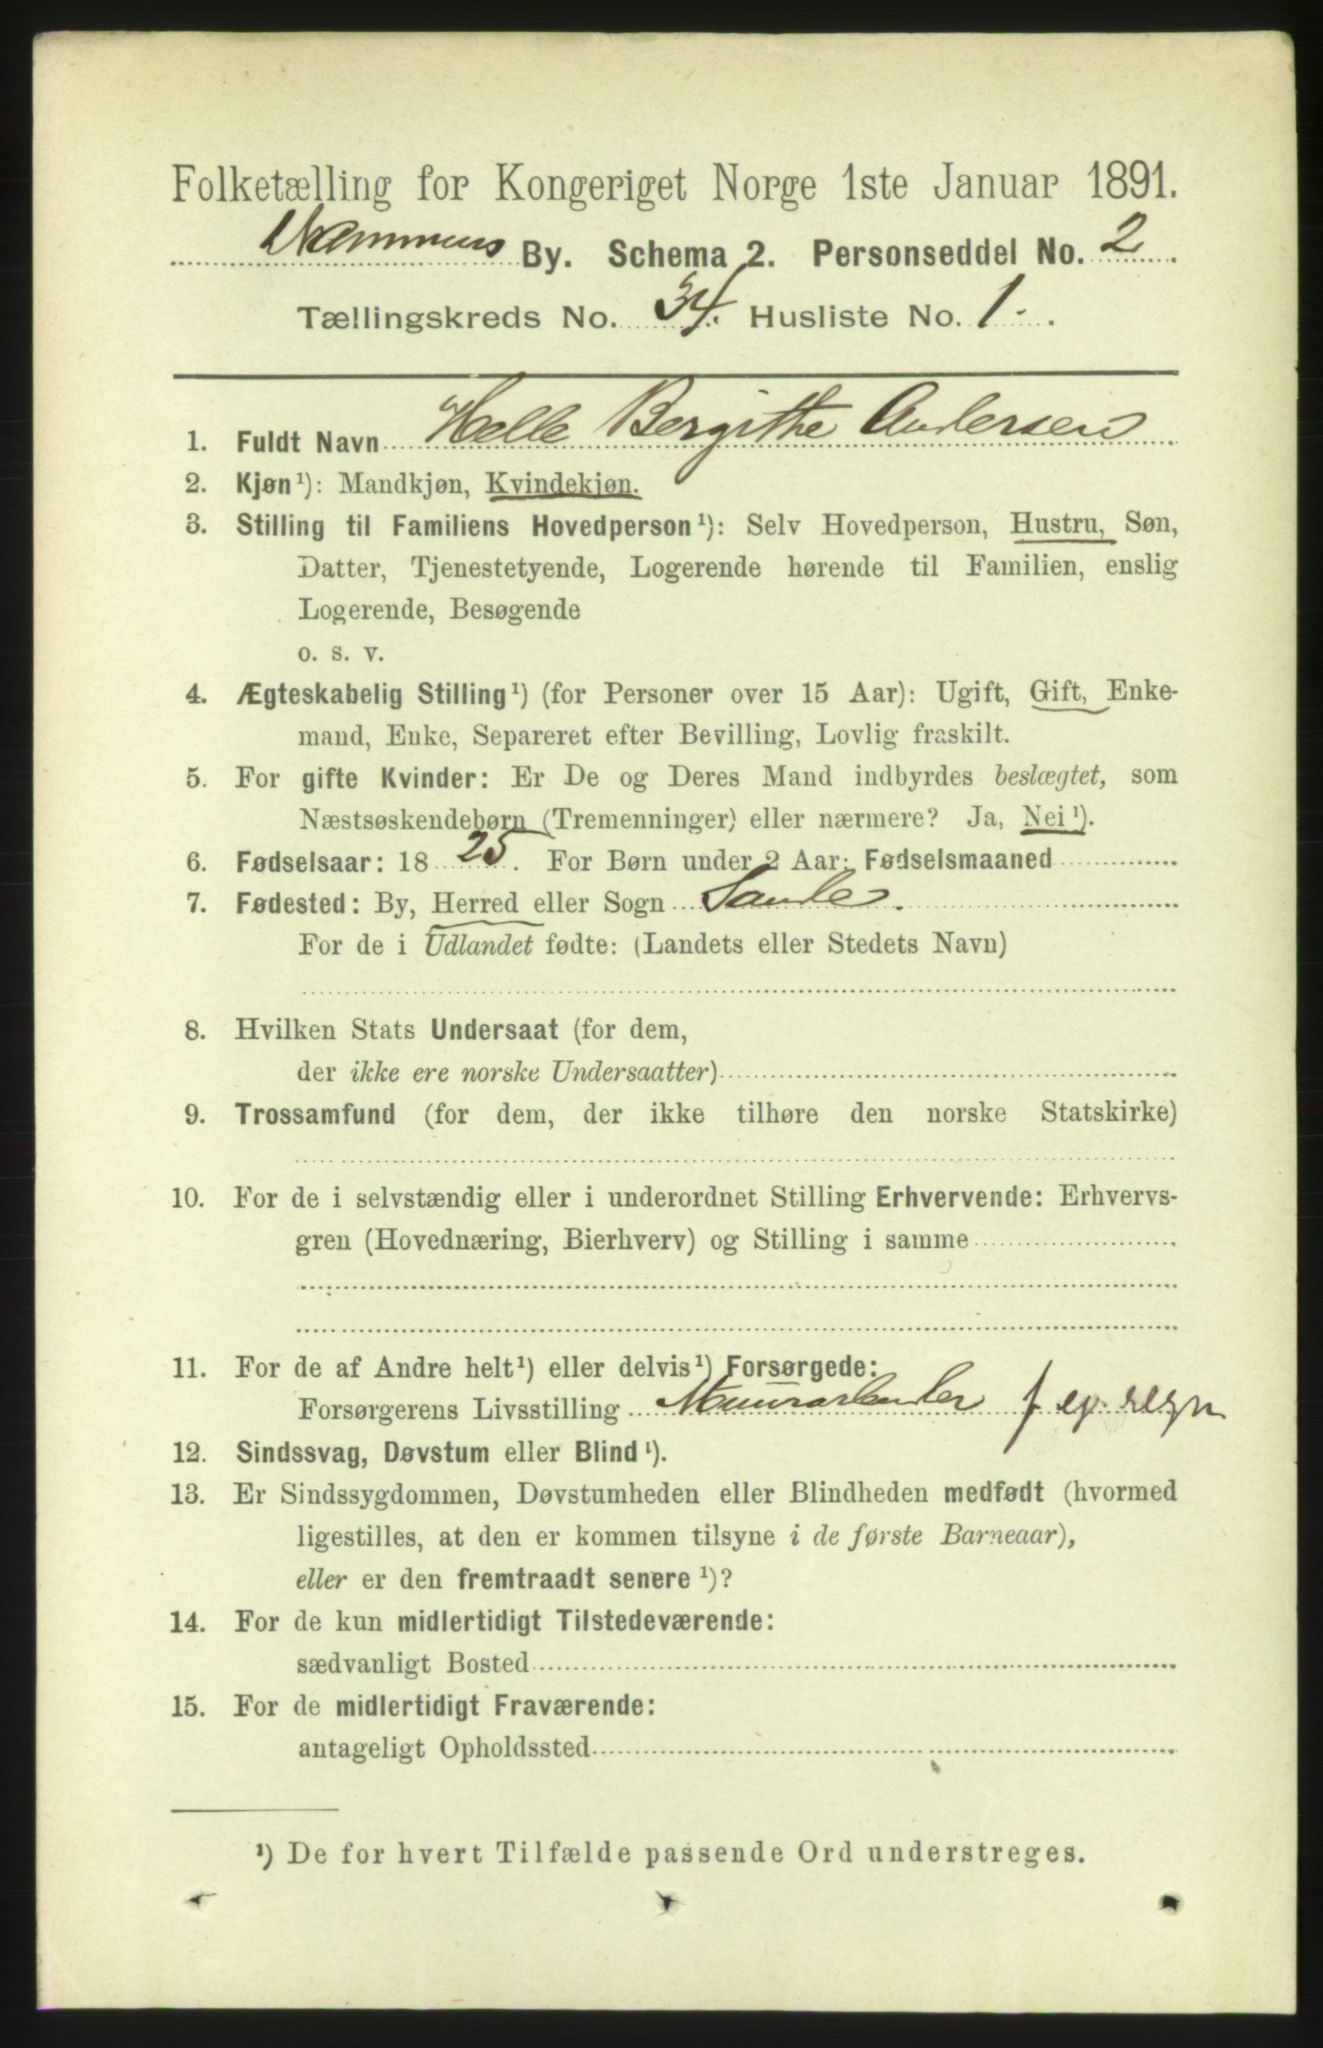 Folketælling for Kongeriget Norge 1ste Januar 1891.
Drammens By. Schema 2. Personseddel No. 2.
Tællingskreds No. 34. Husliste No. 1.
1. Fuldt Navn Helle Bergithe Andersen
2. Kjøn¹): Mandkjøn, Kvindekjøn.
3. Stilling til Familiens Hovedperson¹): Selv Hovedperson, Hustru, Søn,
Datter, Tjenestetyende, Logerende hørende til Familien, enslig
Logerende, Besøgende
o. s. v.
4. Ægteskabelig Stilling¹) (for Personer over 15 Aar): Ugift, Gift, Enke-
mand, Enke, Separeret efter Bevilling, Lovlig fraskilt.
5. For gifte Kvinder: Er De og Deres Mand indbyrdes beslægtet, som
Næstsøskendebørn (Tremenninger) eller nærmere? Ja, Nei¹).
6. Fødselsaar: 1825. For Børn under 2 Aar: Fødselsmaaned
7. Fødested: By, Herred eller Sogn Sande.
For de i Udlandet fødte: (Landets eller Stedets Navn)
8. Hvilken Stats Undersaat (for dem,
der ikke ere norske Undersaatter)
9. Trossamfund (for dem, der ikke tilhøre den norske Statskirke)
10. For de i selvstændig eller i underordnet Stilling Erhvervende: Erhvervs-
gren (Hovednæring, Bierhverv) og Stilling i samme
11. For de af Andre helt¹) eller delvis¹) Forsørgede:
Forsørgerens Livsstilling Muurarbeider f eg. regn
12. Sindssvag, Døvstum eller Blind¹).
13. Er Sindssygdommen, Døvstumheden eller Blindheden medfødt (hvormed
ligestilles, at den er kommen tilsyne i de første Barneaar),
eller er den fremtraadt senere¹)?
14. For de kun midlertidigt Tilstedeværende:
sædvanligt Bosted
15. For de midlertidigt Fraværende:
antageligt Opholdssted
¹) De for hvert Tilfælde passende Ord understreges.